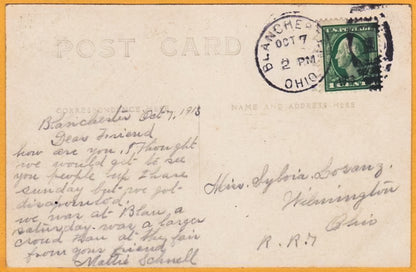 POST CARD
BLANCHESTER
OCT 7
2 PM
OHIO
U.S. POSTAGE
1 CENT 1
CORRESPONDENCE HERE
NAME AND ADDRESS HERE
Blanchester Oct 7, 1913
Dear Friend
how are you. I thought
we would get to see
you people up
sunday but we got
disapointed.
we was at Blan, a
saturday. was a larger
croud than at the fair
from your friend
Mattie Schnell
Miss. Sylvia
Wilmington
Ohio
R. R.